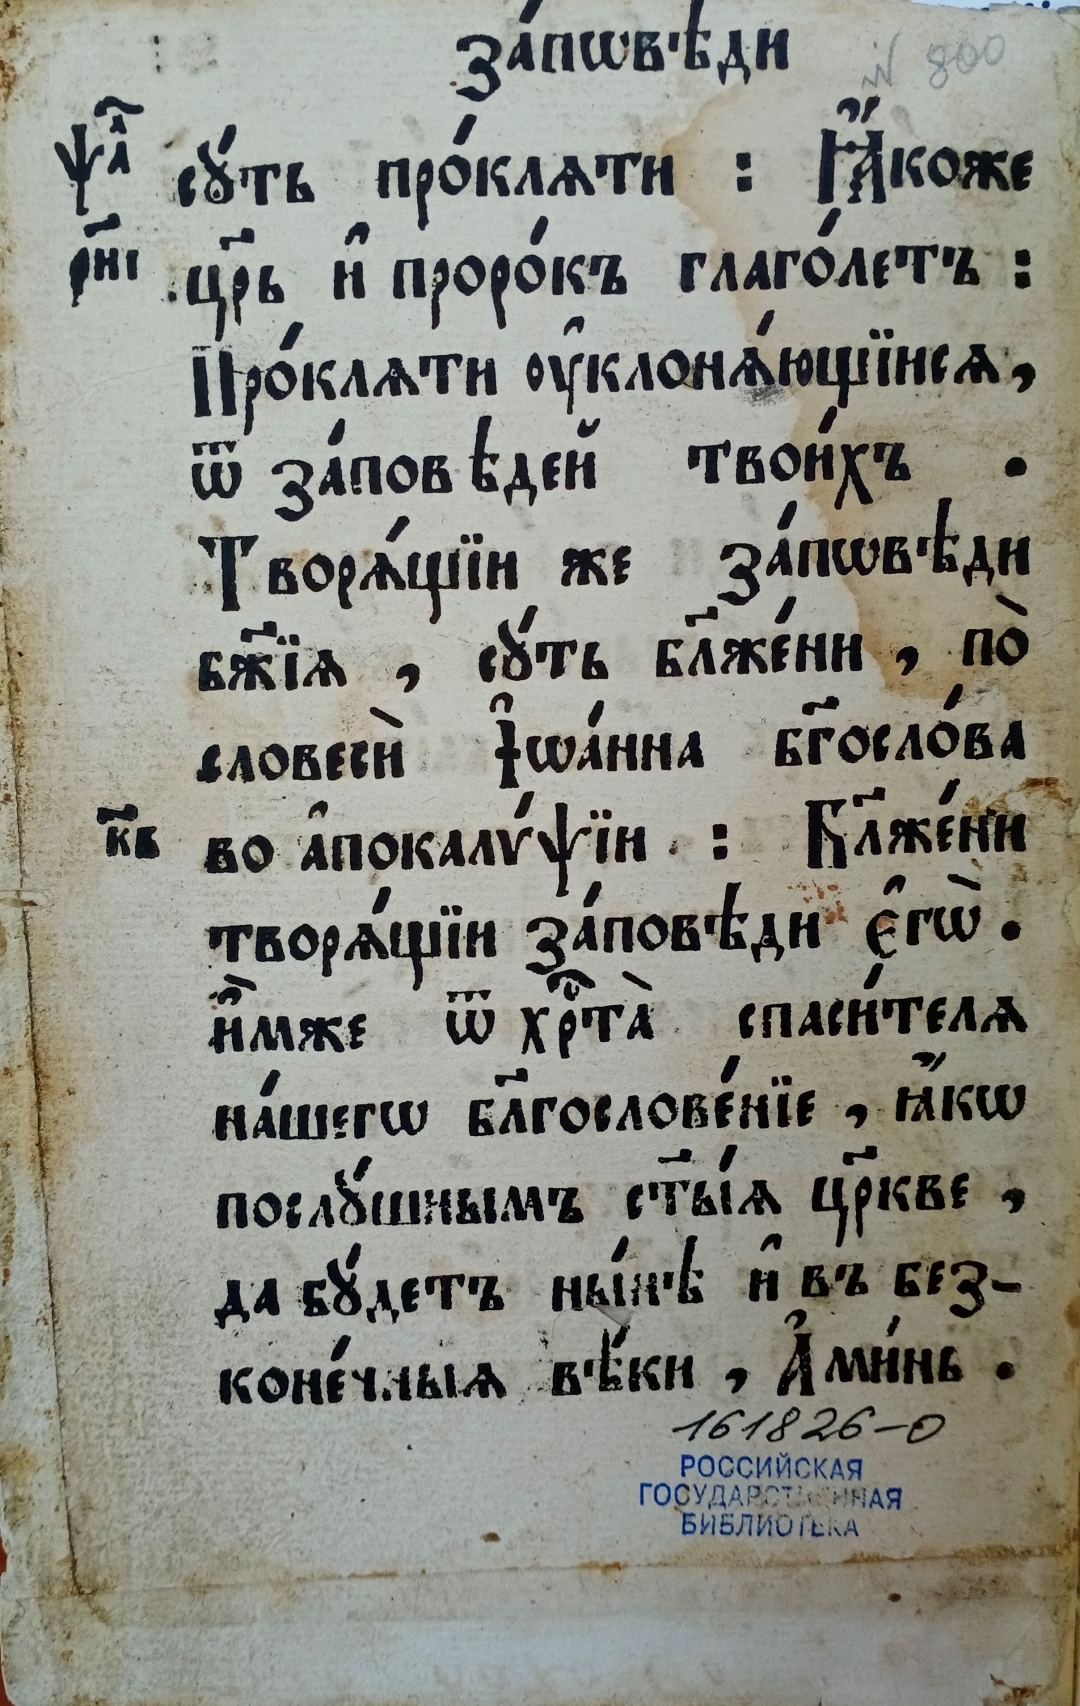 за́пѡвѣди
№ 800
ѱа҃л сꙋ́ть про́клѧти : Ꙗ҆́коже
рн҃і цр҃ь и҆ проро́къ глаго́летъ :
Про́клѧти ᲂу҆клонѧ́ющїисѧ,
ѿ за́повѣдей твои́хъ .
Творѧ́щїи же за́пѡвѣди
бж҃їѧ , сꙋ́ть бл҃же́ни , по̀
словеси̂ І҆ѡа́нна бг҃осло́ва
к҃в во а҆покалѵ́ѱїи : Бл҃же́ни
творѧ́щїи за́повѣди є҆гѡ̀ .
и҆̀мже ѿ хрⷭ҇та̀ спаси́телѧ
на́шегѡ бл҃гослове́нїе , ꙗ҆́кѡ
послꙋ́шнымъ ст҃ы́ѧ цр҃кве ,
да бꙋ́детъ ны́нѣ и҆ въ без-
коне́чныѧ вѣ́ки , А҆ми́нь .
161826-О
РОССИЙСКАЯ
ГОСУДАРСТВЕННАЯ
БИБЛИОТЕКА